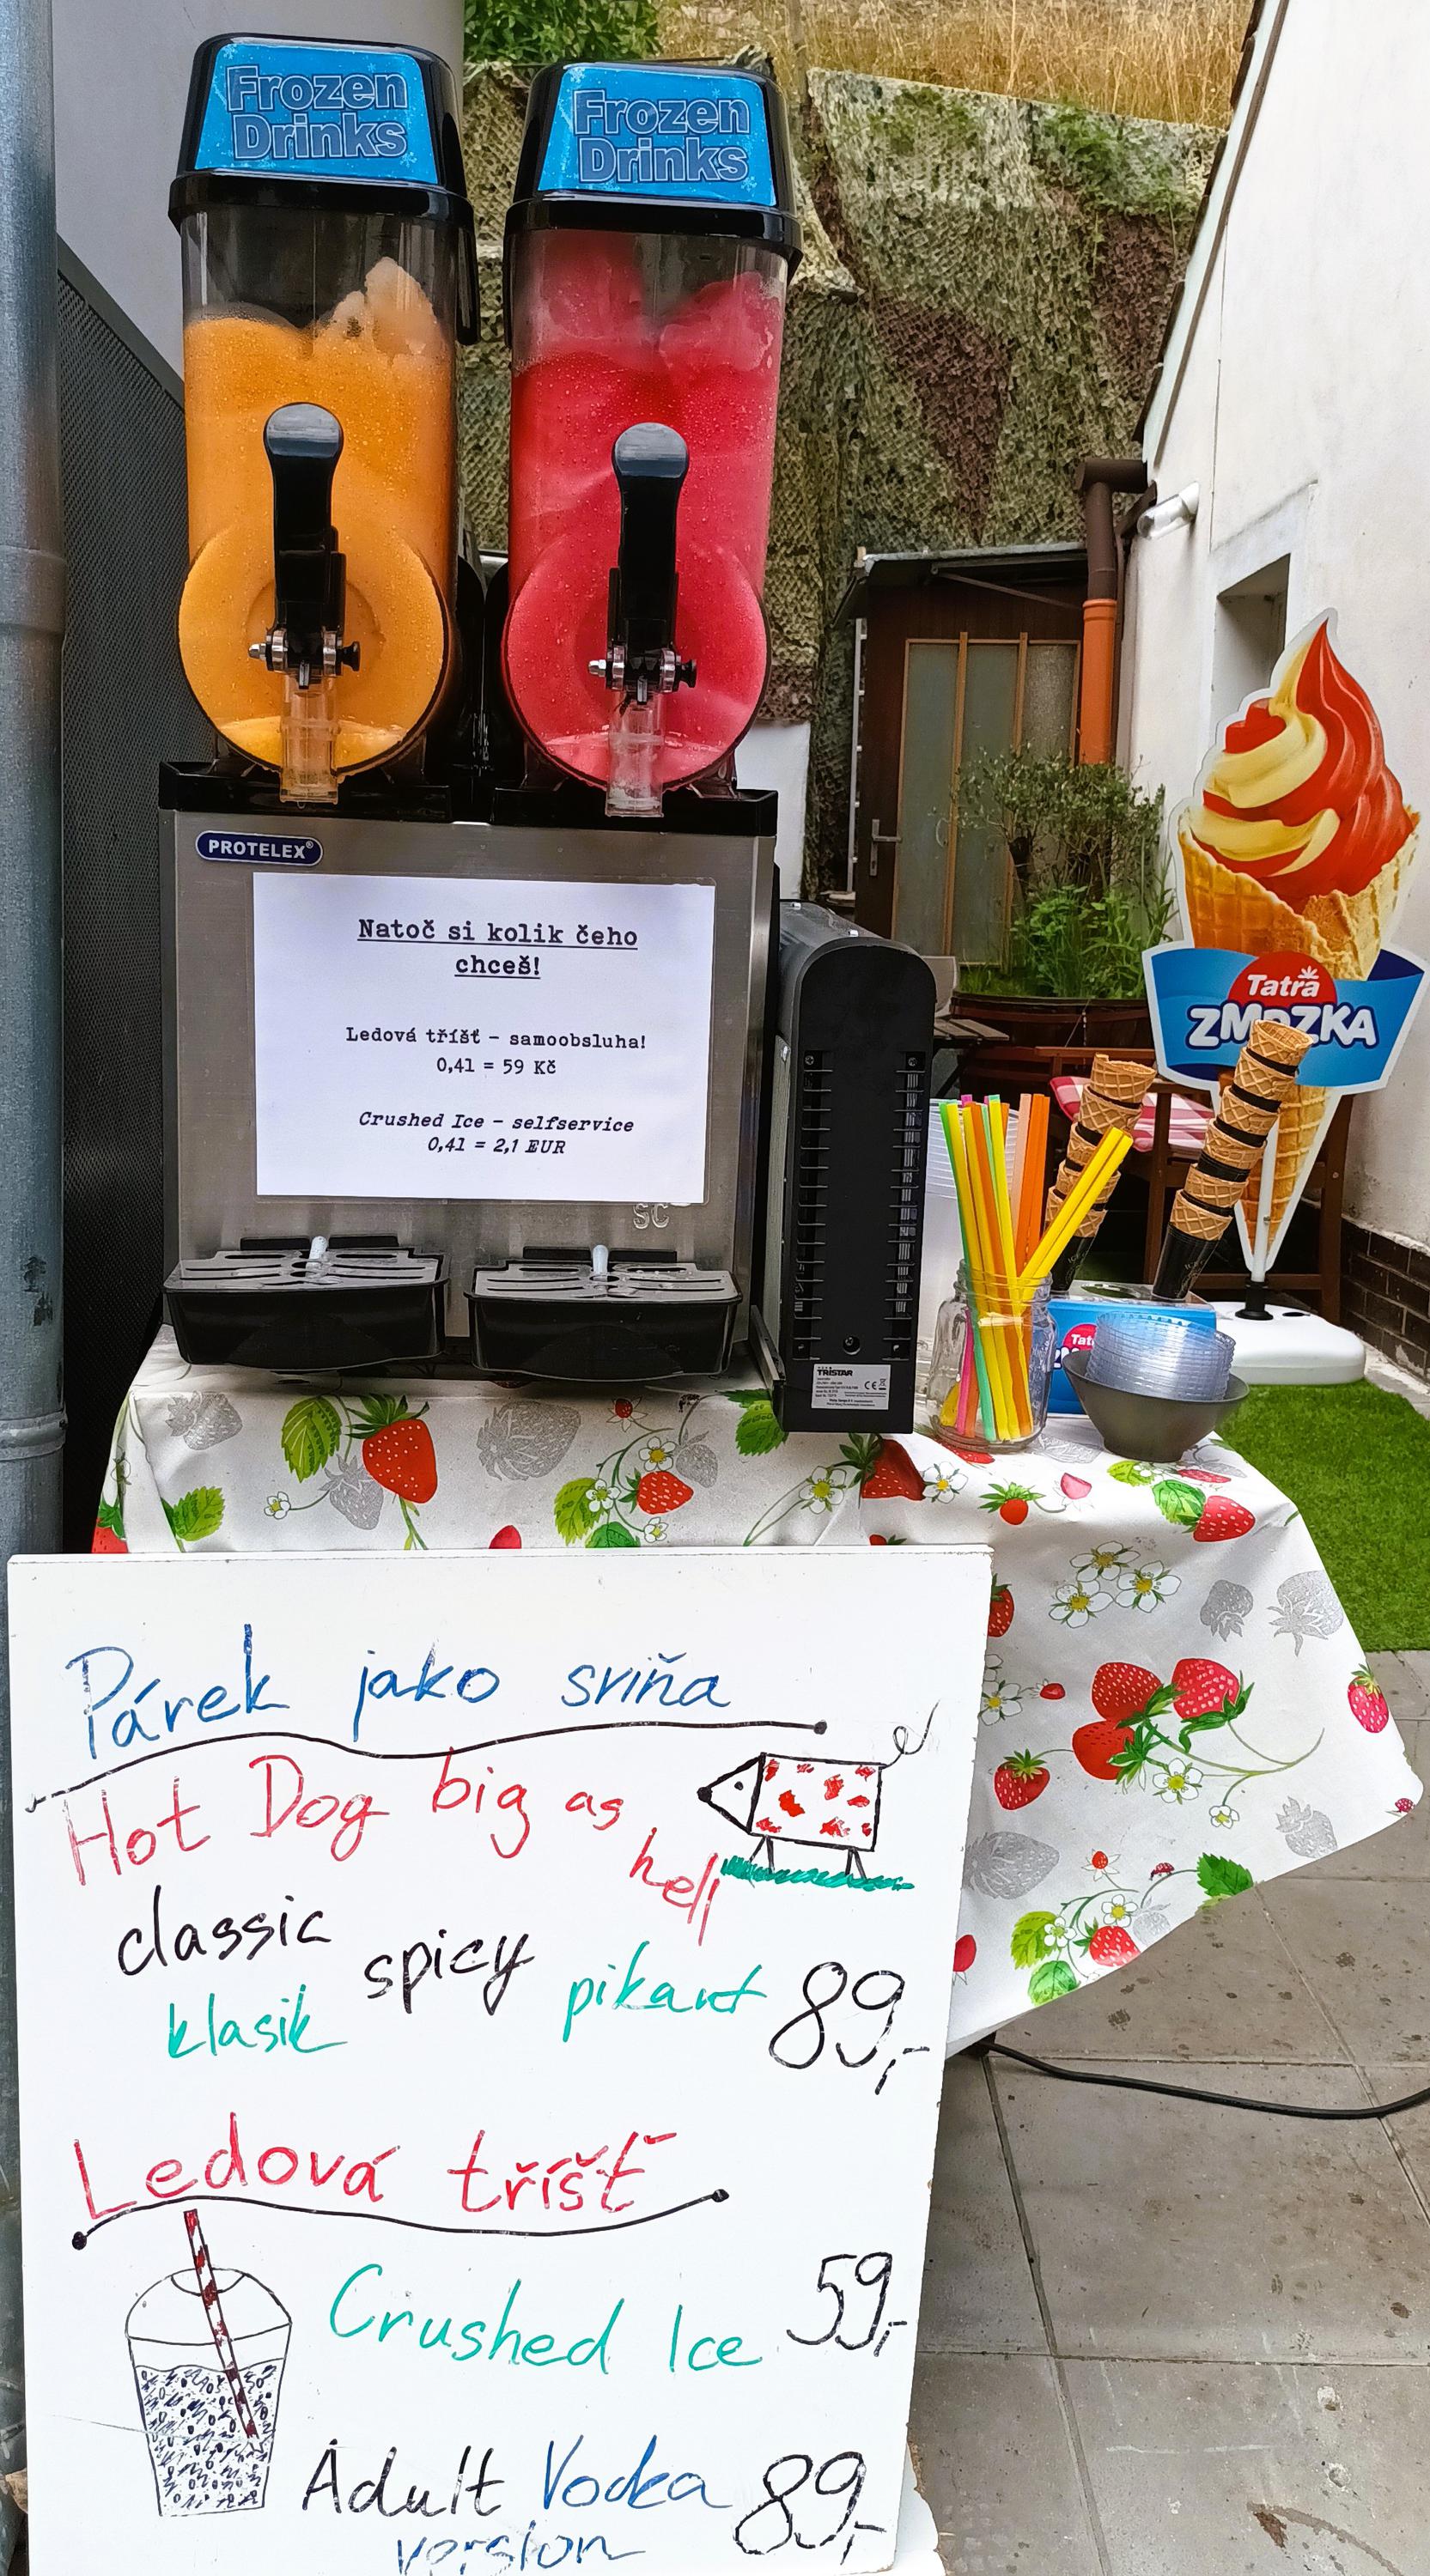 Frozen
Drinks
Frozen
Drinks
PROTELEX®
Natoč si kolik čeho
chceš!
Ledová tříšť - samoobsluha!
0,4l = 59 Kč
Crushed Ice - selfservice
0,4l = 2,1 EUR
SC
Tatra
ZMRZKA
TRISTAR
CE
Párek jako sviňa
Hot Dog big as
hell
classic spicy pikant 89,-
klasik
Ledová tříšť
Crushed Ice 59,-
Adult Vodka 89,-
version